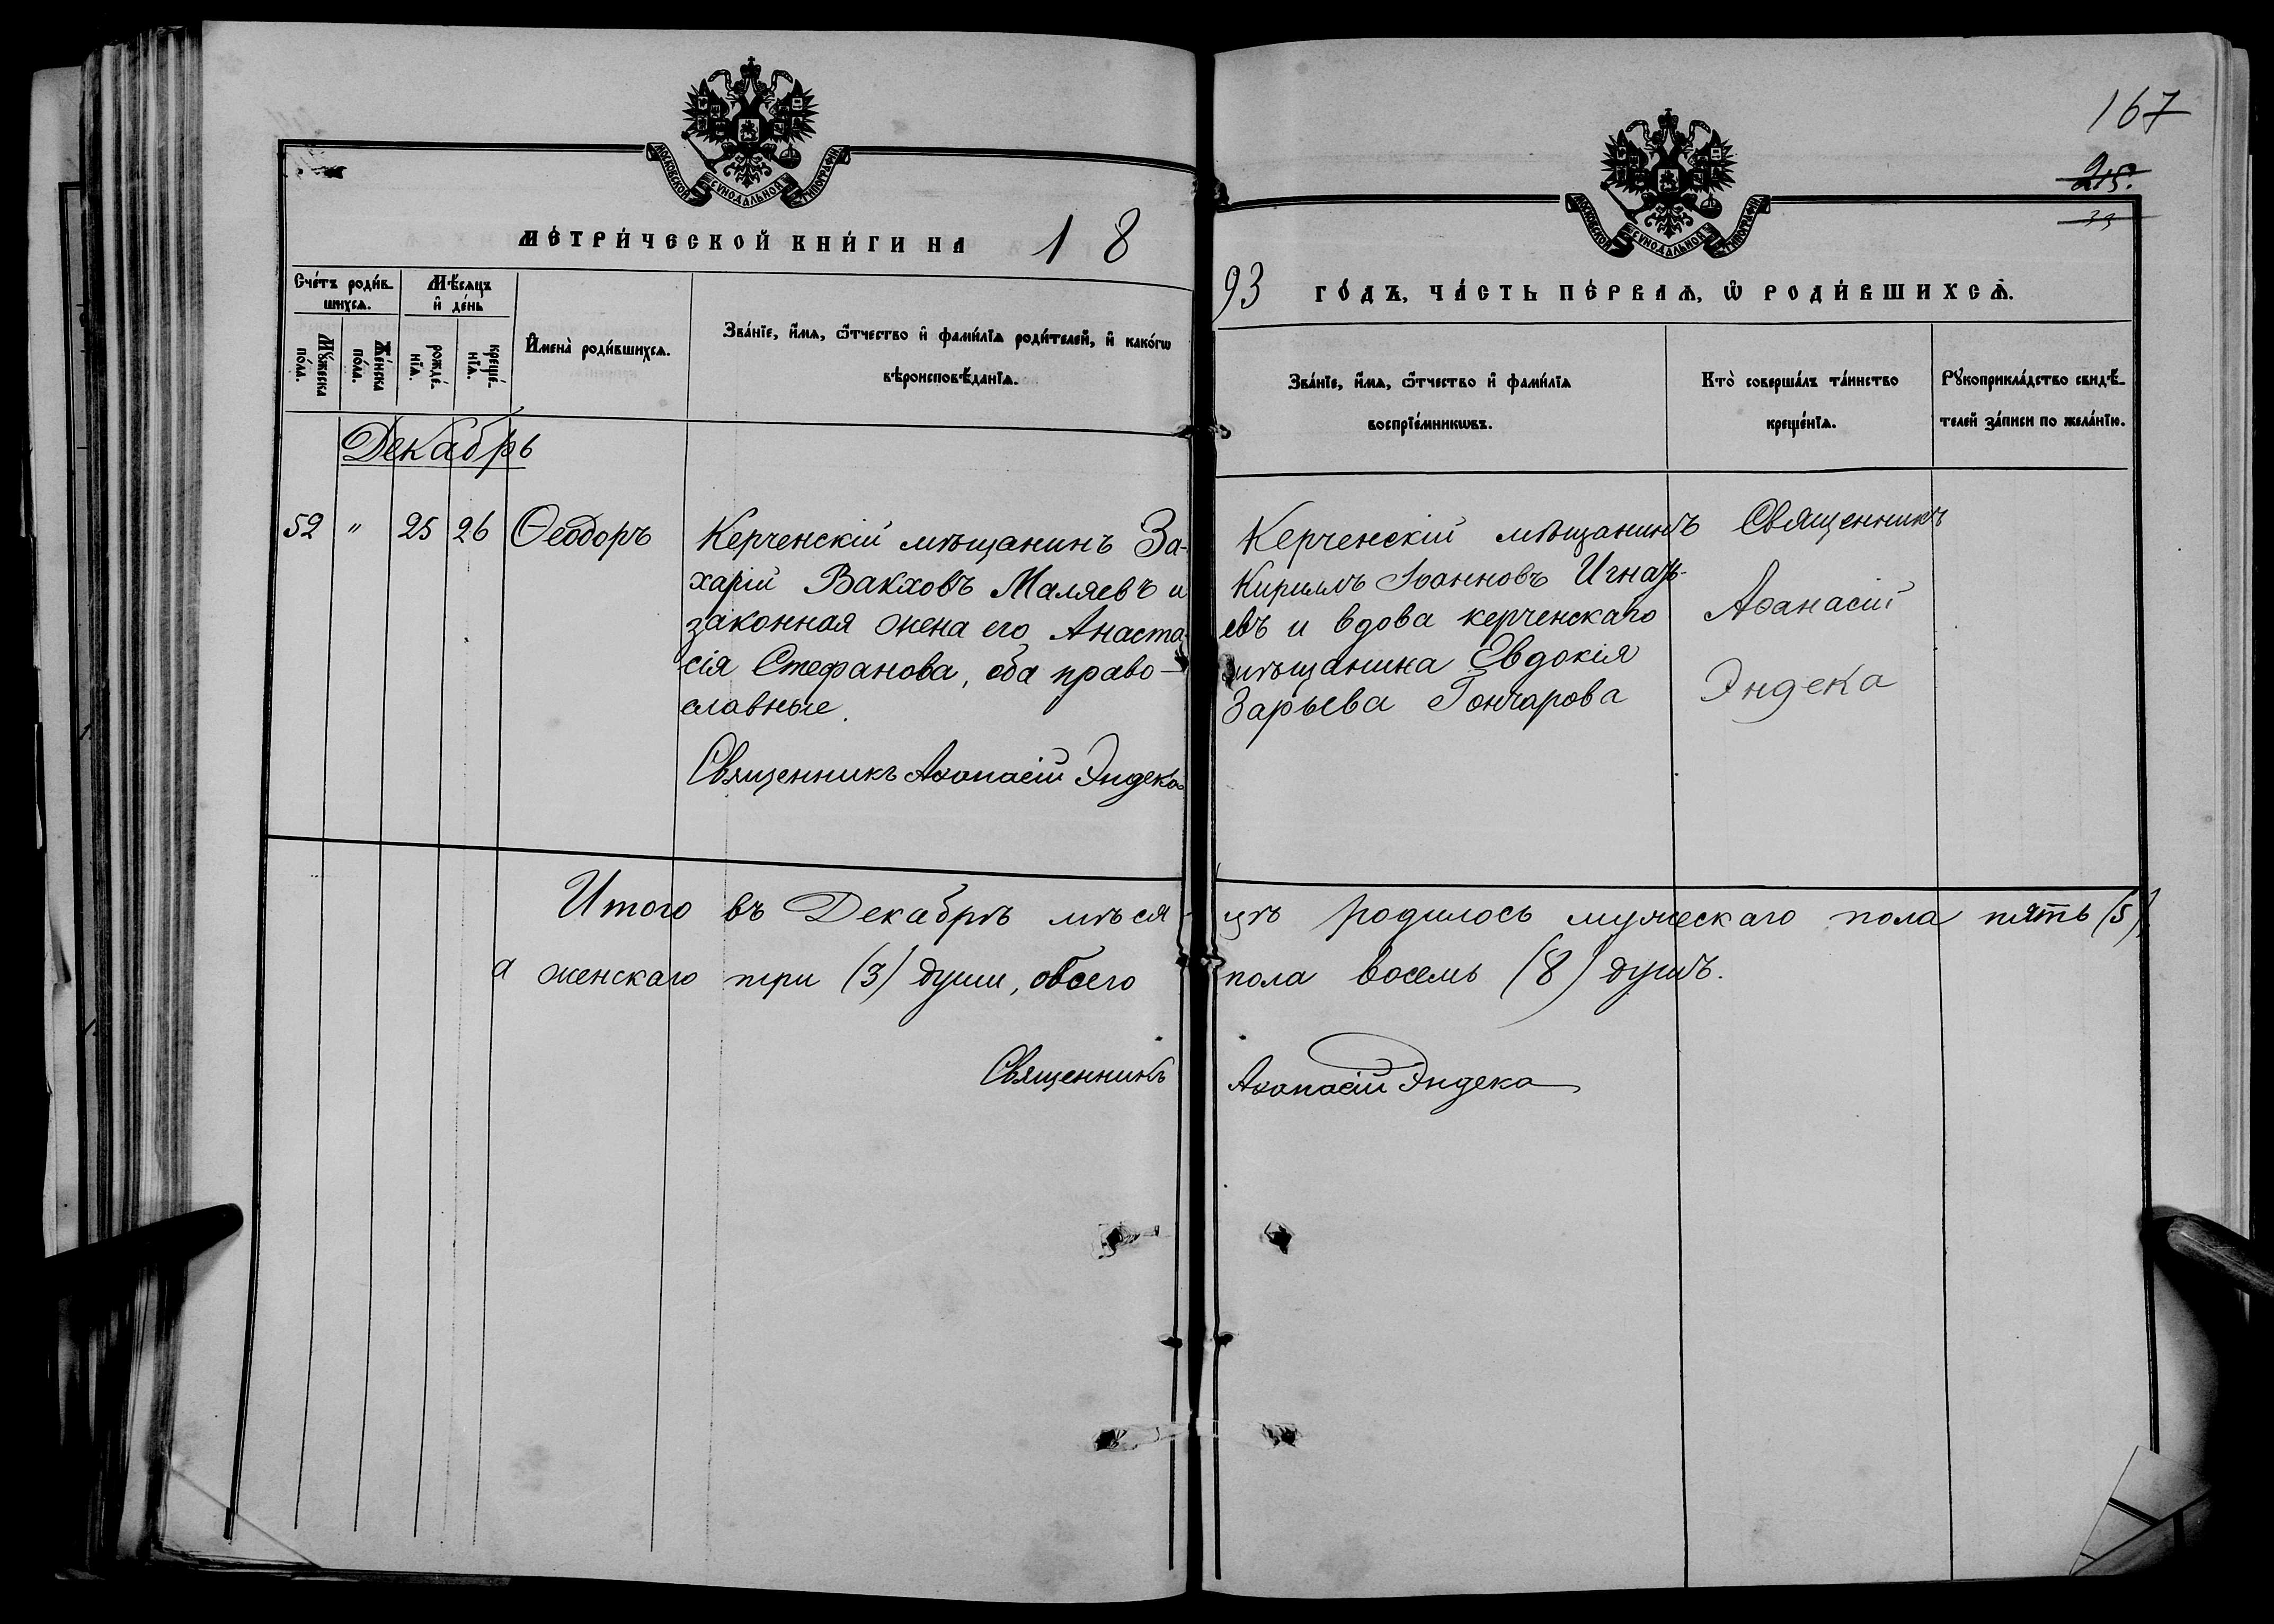 167
215.
33
МОСКОВСКОЙ СѴНОДАЛЬНОЙ ТИПОГРАФІИ
МОСКОВСКОЙ СѴНОДАЛЬНОЙ ТИПОГРАФІИ
МЕТРИ́ЧЕСКОЙ КНИ́ГИ НА 18
93 ГО́ДЪ, ЧА́СТЬ ПЕ́РВАѦ, Ѡ РОДИ́ВШИХСѦ.
Сче́тъ роди́в-
шихсѧ.
Мꙋ́жеска
по́ла.
Же́нска
по́ла.
Мѣ́сѧцъ
и҆ де́нь
рожде́-
нїѧ.
креще́-
нїѧ.
И҆мена̀ роди́вшихсѧ.
Зва́нїе, и҆́мѧ, ѻ҆́тчество и҆ фами́лїѧ роди́телей, и҆ како́гѡ
вѣроисповѣ́данїѧ.
Зва́нїе, и҆́мѧ, ѻ҆́тчество и҆ фами́лїѧ
воспрїе́мникѡвъ.
Кто̀ соверша́лъ та́инство
креще́нїѧ.
Рꙋкоприкла́дство свидѣ́-
телей за́писи по жела́нїю.
Декабрь
52 " 25 26 Ѳеодоръ
Керченскій мѣщанинъ За-
харій Вакховъ Маляевъ и
законная жена его Анаста-
сія Стефанова, оба право-
славные.
Священникъ Аѳанасій Эндека
Керченскій мѣщанинъ
Кириллъ Іоанновъ Игнать-
евъ и вдова керченскаго
мѣщанина Евдокія
Зарьева Гончарова
Священникъ
Аѳанасій
Эндека
Итого въ Декабрѣ мѣся-цѣ родилось мужескаго пола пять (5),
а женскаго три (3) души, обоего пола восемь (8) душъ.
Священникъ Аѳанасій Эндека